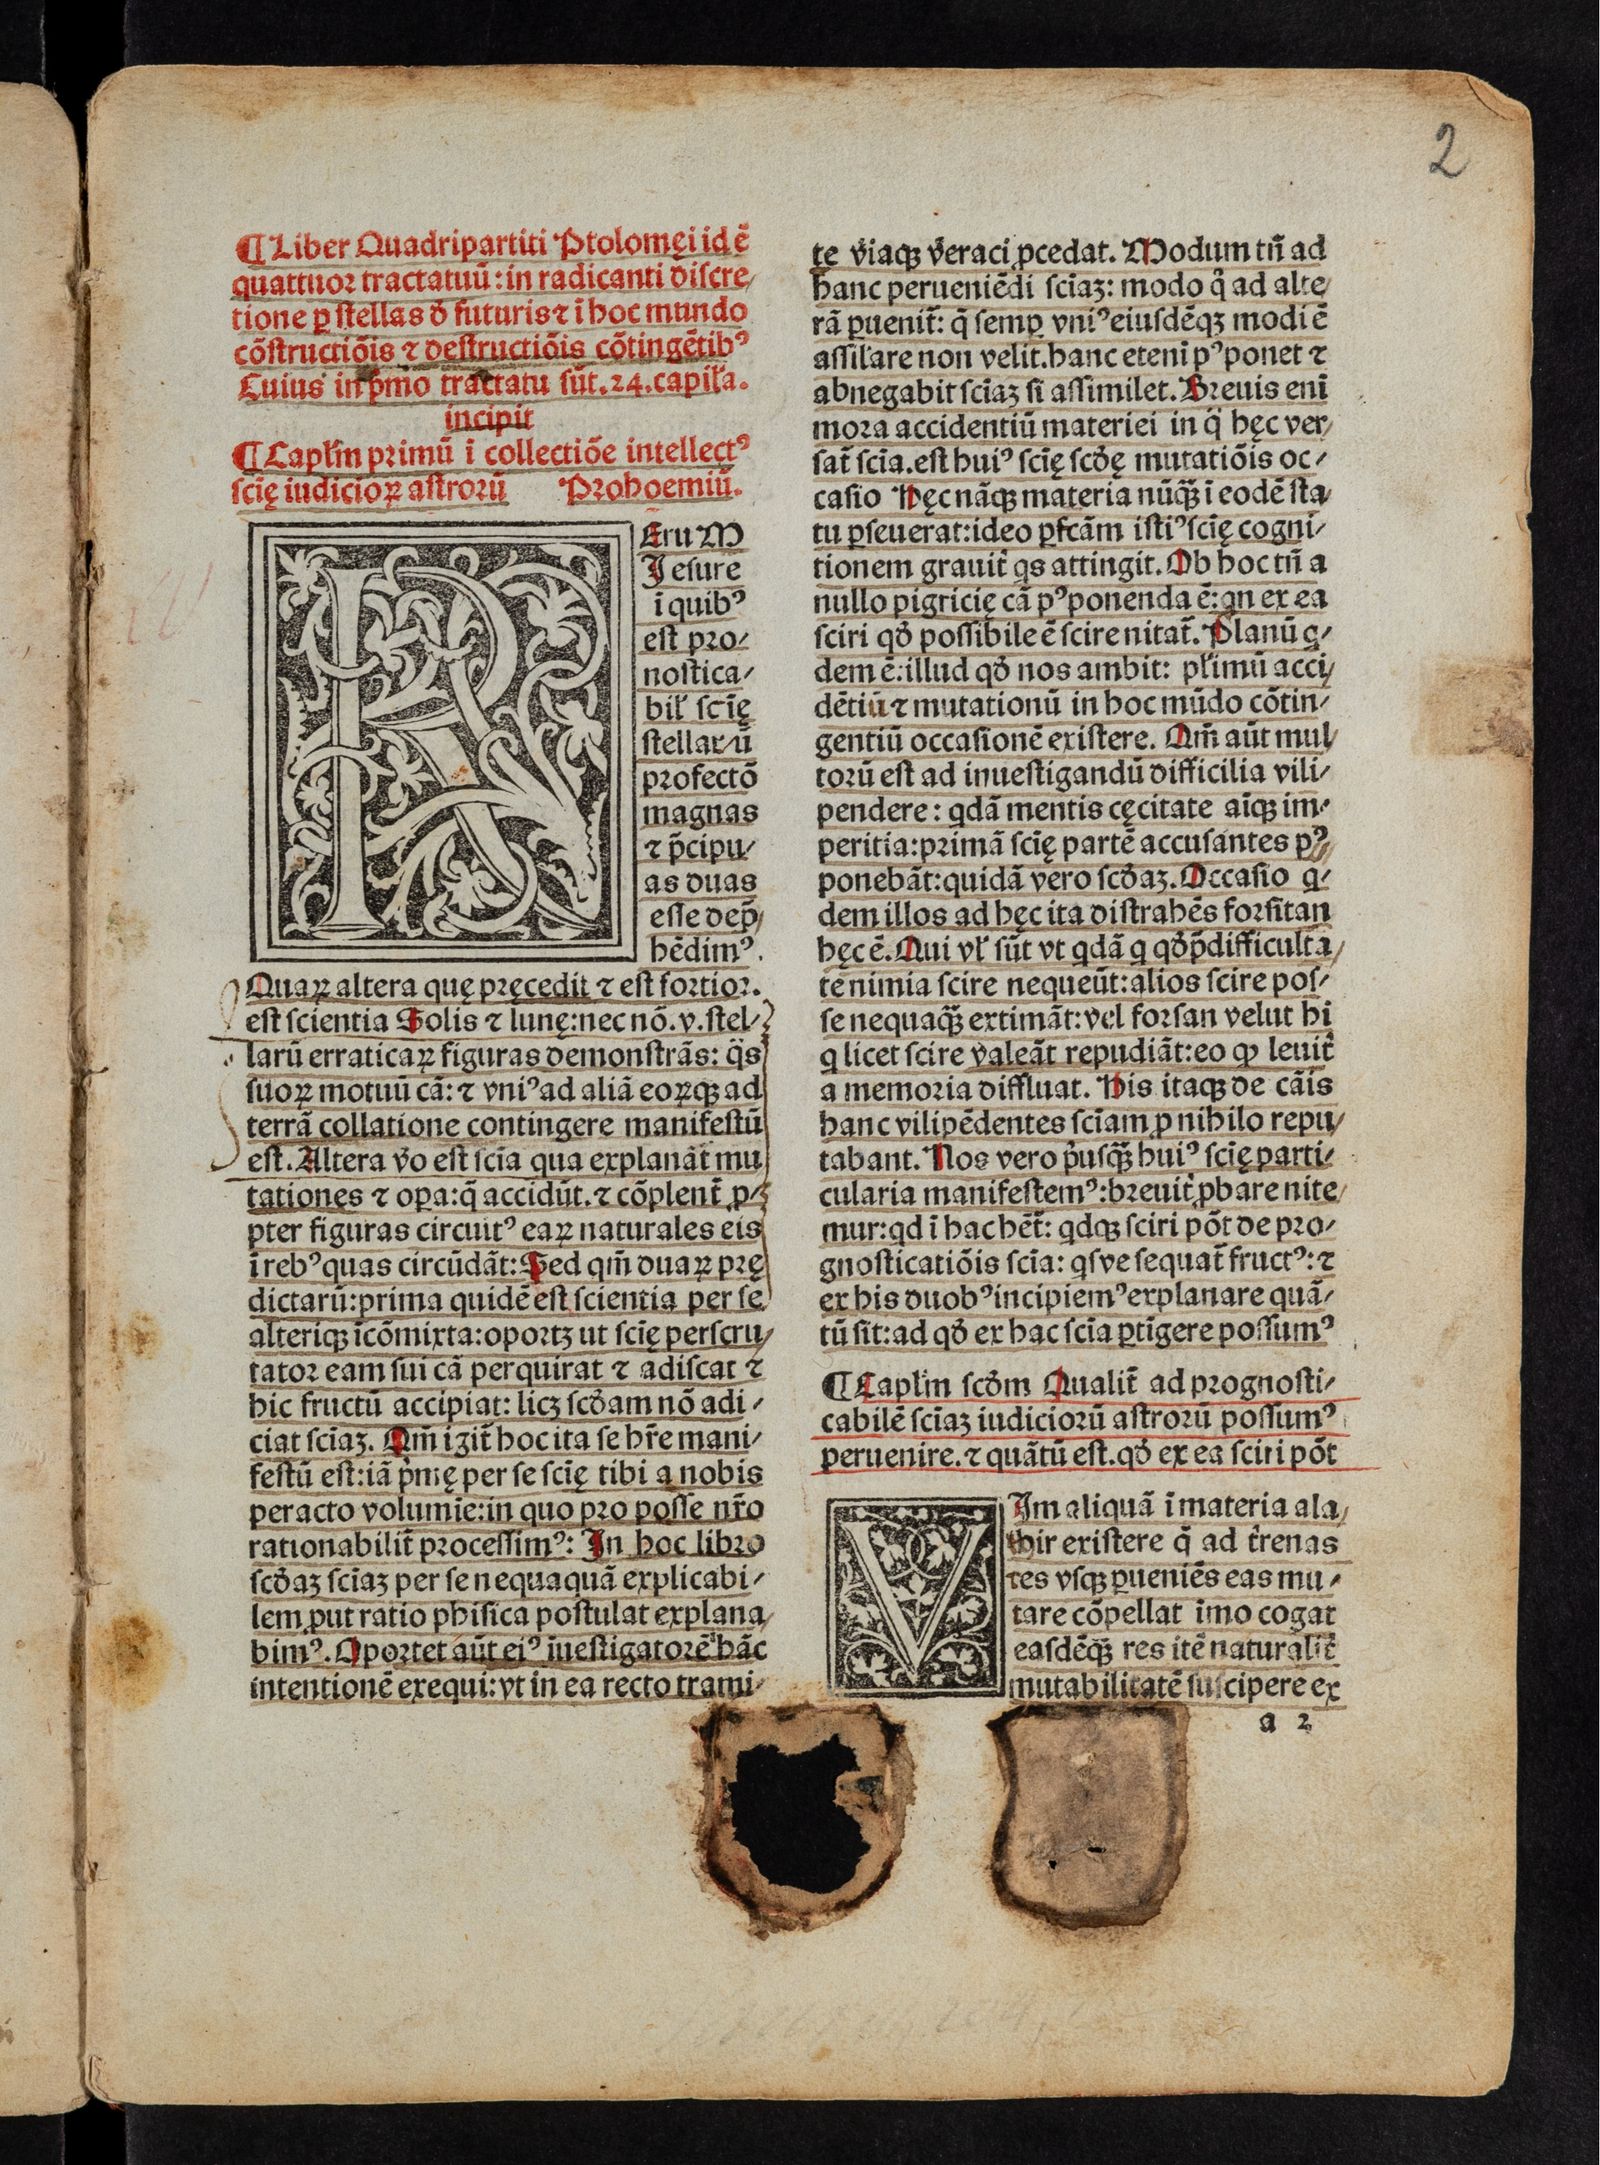 2
¶ Liber Quadripartiti Ptolomęi id ē
quattuor tractatuū: in radicanti discre/
tione ꝑ stellas ð futuris ⁊ ī hoc mundo
cōstructiōis ⁊ destructiōis cōtingētibꝰ
Cuius in pͥmo tractatu sūt .24. capit̄a.
incipit
¶ Capl̄m primū ī collectiōe intellectꝰ
scīę iudicioꝝ astrorū Prohoemiū.
REru M
Iesure
ī quibꝰ
est pro/
nostica/
bil̄ scīę
stellarū
profectō
magnas
⁊ p̄cipu/
as duas
esse dep̄/
hēdimꝰ.
Quaꝝ altera quę pręcedit ⁊ est fortior.
est scientia Solis ⁊ lunę: nec nō .v. stel/
larū erraticaꝝ figuras demonstrās: q̄s
suoꝝ motuū cā: ⁊ vniꝰ ad aliā eoꝝqꝫ ad
terrā collatione contingere manifestū
est. Altera v̄o est scīa qua explanāt mu
tationes ⁊ oꝑa: q̄ accidūt. ⁊ cōplent̄ ꝓ/
pter figuras circuitꝰ eaꝝ naturales eis
ī rebꝰ quas circūdāt: Sed qm̄ duaꝝ prę
dictarū: prima quidē est scientia per se
alteriqꝫ īcōmixta: oportꝫ ut scīę perscru/
tator eam sui cā perquirat ⁊ adiscat ⁊
hic fructū accipiat: licꝫ scðam nō adi/
ciat scīaꝫ. Qm̄ igit̄ hoc ita se hr̄e mani/
festū est: iā pͥmę per se scīę tibi a nobis
peracto volumīe: in quo pro posse nr̄o
rationabilit̄ processimꝰ: In hoc libro
scðaꝫ scīaꝫ per se nequaquā explicabi/
lem ꝓut ratio phisica postulat explana/
bimꝰ. Oportet aūt eiꝰ īuestigatorē hāc
intentionē exequi: vt in ea recto trami/
te v̄iaqꝫ v̄eraci ꝓcedat. Modum tn̄ ad
hanc perueniēdi scīaꝫ: modo q̄ ad alte/
rā ꝑuenit̄: q̄ semꝑ vniꝰ eiusdēqꝫ modi ē
assil̄are non velit. hanc etenī pꝰponet ⁊
abnegabit scīaꝫ si assimilet. Breuis enī
mora accidentiū materiei in q̄ hęc ver/
sat̄ scīa. est huiꝰ scīę scðę mutatiōis oc/
casio Hęc nāqꝫ materia nūqꝫ̄ ī eodē sta/
tu ꝑseuerat: ideo ꝑfcām istiꝰ scīę cogni/
tionem grauit̄ qs attingit. Ob hoc tn̄ a
nullo pigricię cā pꝰponenda ē: qn ex ea
sciri qð possibile ē scire nitat̄. Planū q/
dem ē: illud qð nos ambit: pl̄imū acci/
dētiū ⁊ mutationū in hoc mūdo cōtin/
gentiū occasionē existere. Qm̄ aūt mul/
torū est ad inuestigandū difficilia vili/
pendere: qdā mentis cęcitate atqꝫ im/
peritia: primā scīę partē accusantes pꝰ/
ponebāt: quidā vero scðaꝫ. Occasio q/
dem illos ad hęc ita distrahēs forsitan
hęc ē. Qui vl̄ sūt vt qdā q qð p̄difficulta/
te nimia scire nequeūt: alios scire pos/
se nequaqꝫ̄ extimāt: vel forsan velut hi
q licet scire valeāt repudiāt: eo ꝙ leuit̄
a memoria diffluat. His itaqꝫ de cāis
hanc vilipēdentes scīam ꝓ nihilo repu/
tabant. Nos vero pͥusqꝫ̄ huiꝰ scīę parti/
cularia manifestemꝰ: breuit̄ ꝓbare nite/
mur: qd ī hac hēt̄: qdqꝫ sciri pōt de pro/
gnosticatiōis scīa: qsve sequat̄ fructꝰ: ⁊
ex his duobꝰ incipiemꝰ explanare quā/
tū sit: ad qð ex hac scīa ꝑtīgere possumꝰ
¶ Capl̄m scðm Qualit̄ ad prognosti/
cabilē scīaꝫ iudiciorū astrorū possumꝰ
peruenire. ⁊ quātū est. qð ex ea sciri pōt
VIm aliquā ī materia ala/
thir existere q̄ ad t̄renas
res vsqꝫ ꝑueniēs eas mu/
tare cōpellat īmo cogat
easdēqꝫ̄ res itē naturalit̄
mutabilitatē suscipere ex
a 2